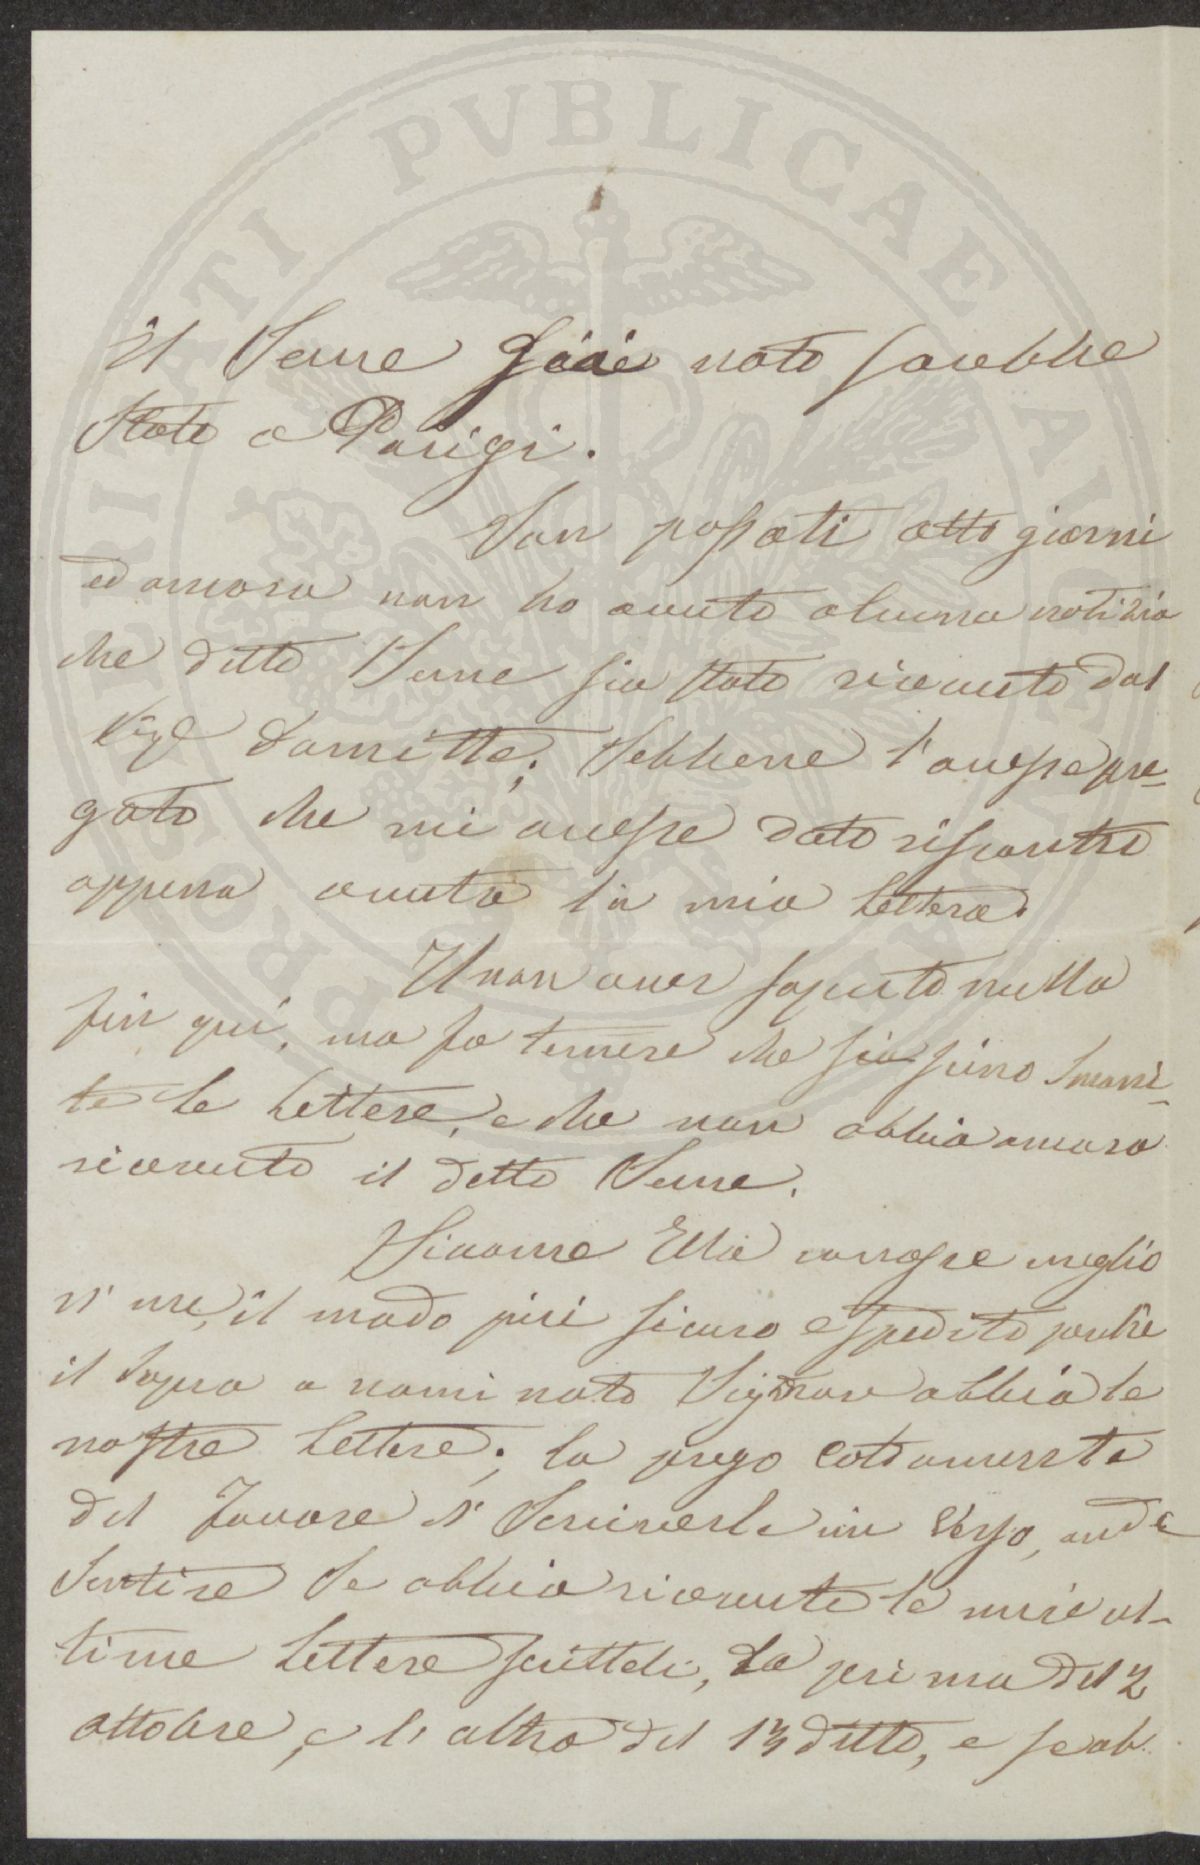 PROSPERITATI PVBLICAE AVGENDAE
il Seme giàè noto sarebbe
stato a Parigi.
Son passati otto giorni
ed ancora non ho avuto alcuna notizia
che ditto Seme sia stato ricevuto dal
Sigr Damitte; sebbene l'avesse pre-
gato che mi avesse dato riscontro
appena avuta la mia lettera.
Il non aver saputo nulla
fin qui, ma fa temere che siansino smarri-
te le lettere, e che non abbia ancora
ricevuto il detto Seme.
Siccome Ella conosce meglio
di me, il modo più sicuro e spedito perchè
il sopra a nomi nato Signore abbia le
nostre lettere; la prego caldamente
del favore di scriverle un verso, onde
sentire se abbia ricevute le mie ul-
time lettere scritteli, la prima del 2
ottobre, e l'altra del 13 ditto, e se ab-